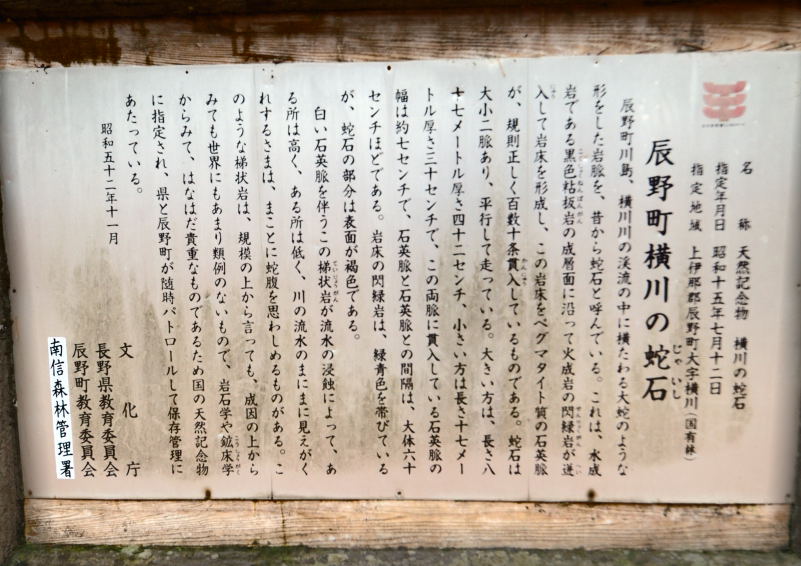 名　称　天然記念物　横川の蛇石
指定年月日　昭和十五年七月十二日
指定地域　上伊那郡辰野町大字横川（国有林）
辰野町横川の蛇石
じゃいし
辰野町川島、横川川の渓流の中に横たわる大蛇のような
形をした岩脈を、昔から蛇石と呼んでいる。これは、水成
岩である黒色粘板岩の成層面に沿って火成岩の閃緑岩が迸
入して岩床を形成し、この岩床をペグマタイト質の石英脈
が、規則正しく百数十条貫入しているものである。蛇石は
大小二脈あり、平行して走っている。大きい方は、長さ八
十七メートル厚さ四十二センチ、小さい方は長さ十七メー
トル厚さ三十センチで、この両脈に貫入している石英脈の
幅は約七センチで、石英脈と石英脈との間隔は、大体六十
センチほどである。岩床の閃緑岩は、緑青色を帯びている
が、蛇石の部分は表面が褐色である。
白い石英脈を伴うこの梯状岩が流水の浸蝕によって、あ
る所は高く、ある所は低く、川の流水のまにまに見えがく
れするさまは、まことに蛇腹を思わしめるものがある。こ
のような梯状岩は、規模の上から言っても、成因の上から
みても世界にもあまり類例のないもので、岩石学や鉱床学
からみて、はなはだ貴重なものであるため国の天然記念物
に指定され、県と辰野町が随時パトロールして保存管理に
あたっている。
昭和五十二年十一月
文化庁
長野県教育委員会
辰野町教育委員会
南信森林管理署